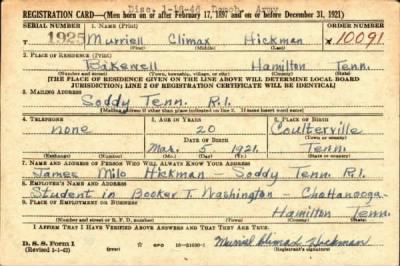 Disc. 1-18-46 Army
REGISTRATION CARD—(Men born on or after February 17, 1897 and on or before December 31, 1921)
SERIAL NUMBER 1. NAME (Print) ORDER NUMBER
T 1925 Murriell Climax Hickman 10091
(First) (Middle) (Last)
2. PLACE OF RESIDENCE (Print)
Bakewell Hamilton Tenn.
(Number and street) (Town, township, village, or city) (County) (State)
[THE PLACE OF RESIDENCE GIVEN ON THE LINE ABOVE WILL DETERMINE LOCAL BOARD
JURISDICTION; LINE 2 OF REGISTRATION CERTIFICATE WILL BE IDENTICAL]
3. MAILING ADDRESS
Soddy Tenn. R.1.
[Mailing address if other than place indicated on line 2. If same insert word same]
4. TELEPHONE 5. AGE IN YEARS 6. PLACE OF BIRTH
none 20 Coulterville
DATE OF BIRTH
Mar. 5 1921. Tenn.
(Exchange) (Number) (Mo.) (Day) (Yr.) (State or country)
7. NAME AND ADDRESS OF PERSON WHO WILL ALWAYS KNOW YOUR ADDRESS
James Milo Hickman - Soddy Tenn. R.1.
8. EMPLOYER'S NAME AND ADDRESS
Student in Booker T. Washington - Chattanooga
9. PLACE OF EMPLOYMENT OR BUSINESS
Hamilton Tenn.
(Number and street or R. F. D. number) (Town) (County) (State)
I AFFIRM THAT I HAVE VERIFIED ABOVE ANSWERS AND THAT THEY ARE TRUE.
D. S. S. Form 1
(Revised 1-1-42) (over) GPO 16-21630-1 Muriel Climax Hickman
(Registrant's signature)